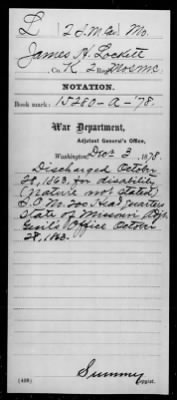 L (2 S.M. Cav.) Mo.
James H. Lockett
Co. K, 2 Reg't Mo S M C.
NOTATION.
Book mark: 15280-A-'78.
War Department,
Adjutant General's Office,
Washington, Dec 3, 1878.
Discharged October
28, 1863, for disability
(nature not stated)
S.O. No. 200 Head Quarters
State of Missouri Adjt.
Genl's Office October
28, 1863.
Summy
Copist.